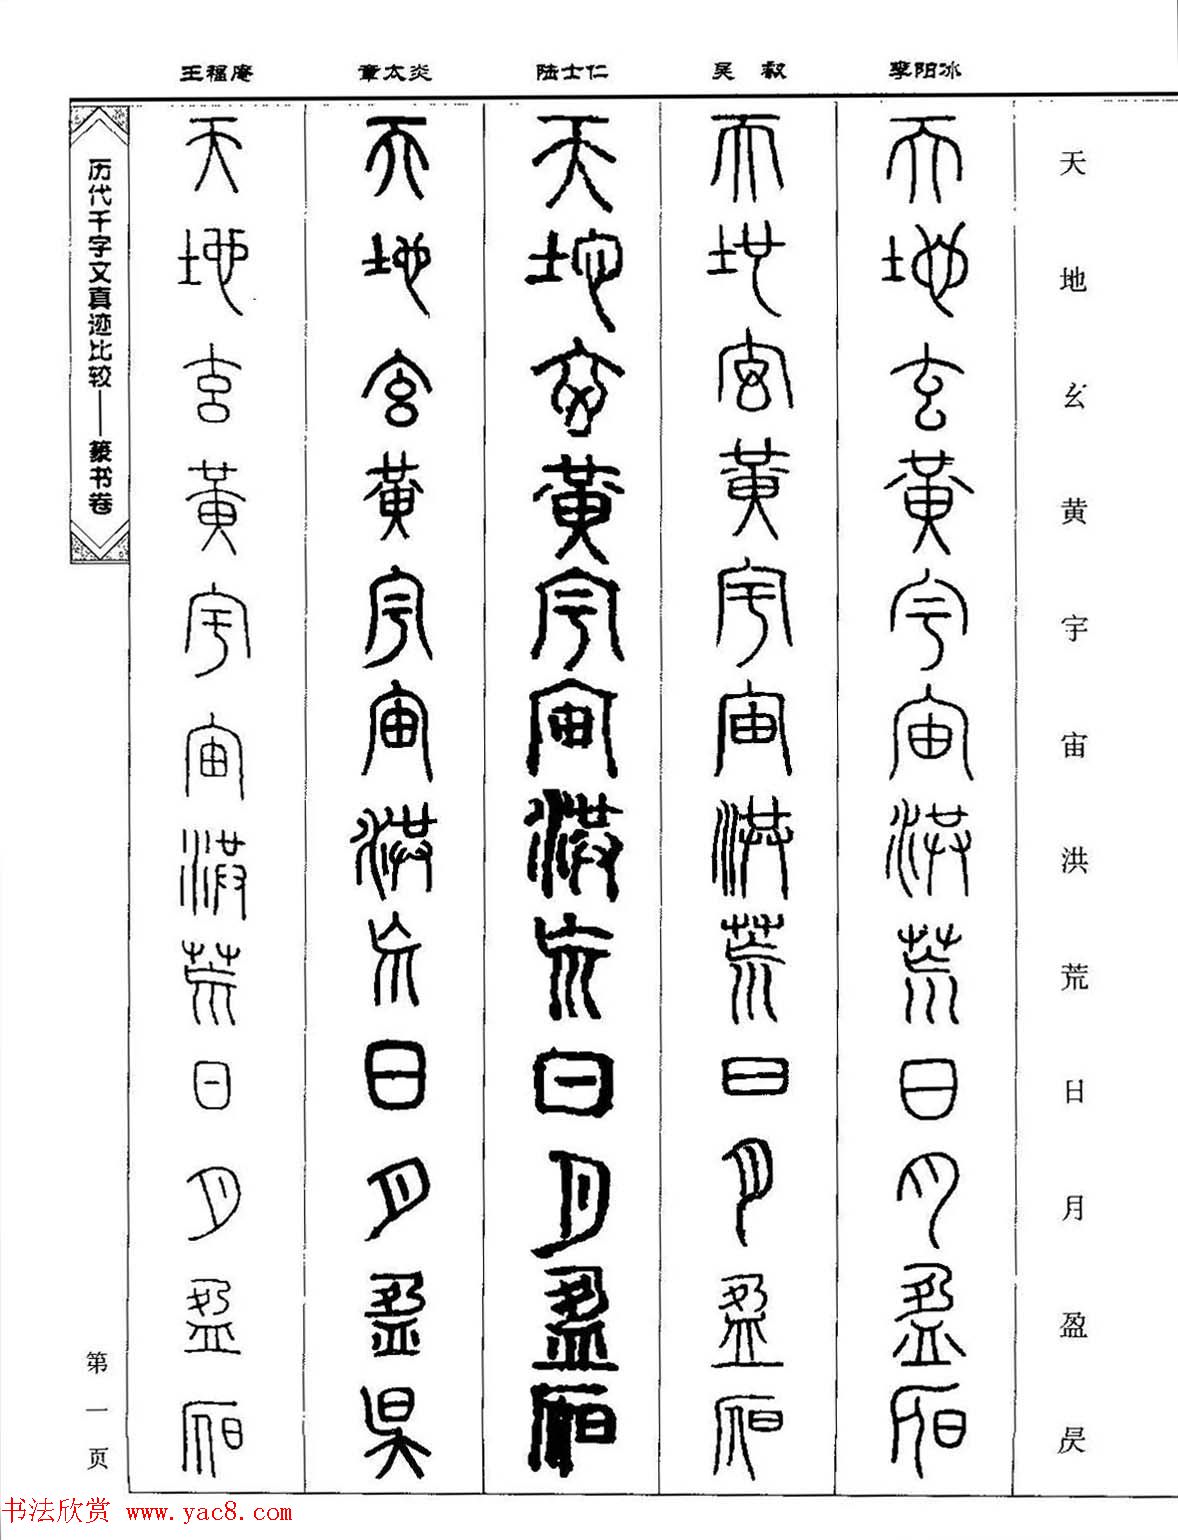 王福庵 章太炎 陆士仁 吴 叡 李阳冰
天地玄黄宇宙洪荒日月盈昃
天地玄黃宇宙洪荒日月盈昃
天地玄黃宇宙洪荒日月盈昃
天地玄黃宇宙洪荒日月盈昃
天地玄黃宇宙洪荒日月盈昃
天地玄黃宇宙洪荒日月盈昃
历代千字文真迹比较——篆书卷
第一页
书法欣赏 www.yac8.com